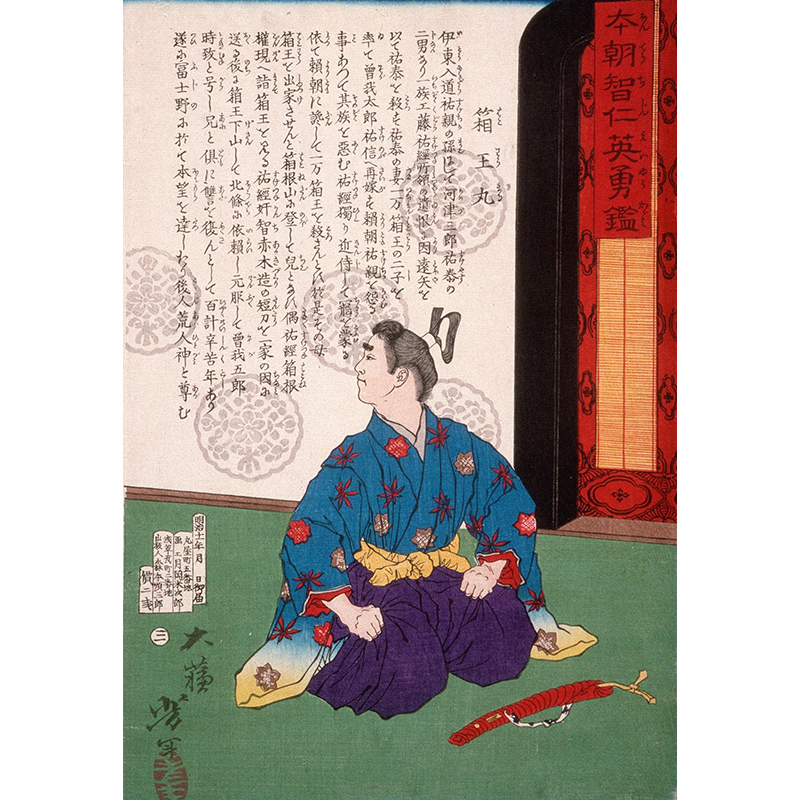 本朝智仁英勇鑑
箱王丸
伊東入道祐親の孫にして河津三郎祐泰の
二男なり一族工藤祐經所領の遺恨に因遠矢を
以て祐泰を殺す祐泰の妻一万箱王の二子を
率て曽我太郎祐信へ再嫁す頼朝祐親を怨る
事あつて其族を惡む祐經獨り近侍して寵を蒙る
依て頼朝に讒して一万箱王を殺さんとす於是その母
箱王を出家させんと箱根山に登して兒とす偶祐經箱根
權現へ詣箱王を見る祐經奸智赤木造の短刀を一家の因に
送る後に箱王下山して北條に依頼し元服して曽我五郎
時致と号し兄と倶に讐を復んとして百計辛苦年あり
遂に冨士野に於て本望を達したり後人荒人神と尊む
明治十一年 月 日御届
丸屋町五番地
画工月岡米次郎
浅草瓦町二番地
出板人
價二戔
三
大蘓
芳年